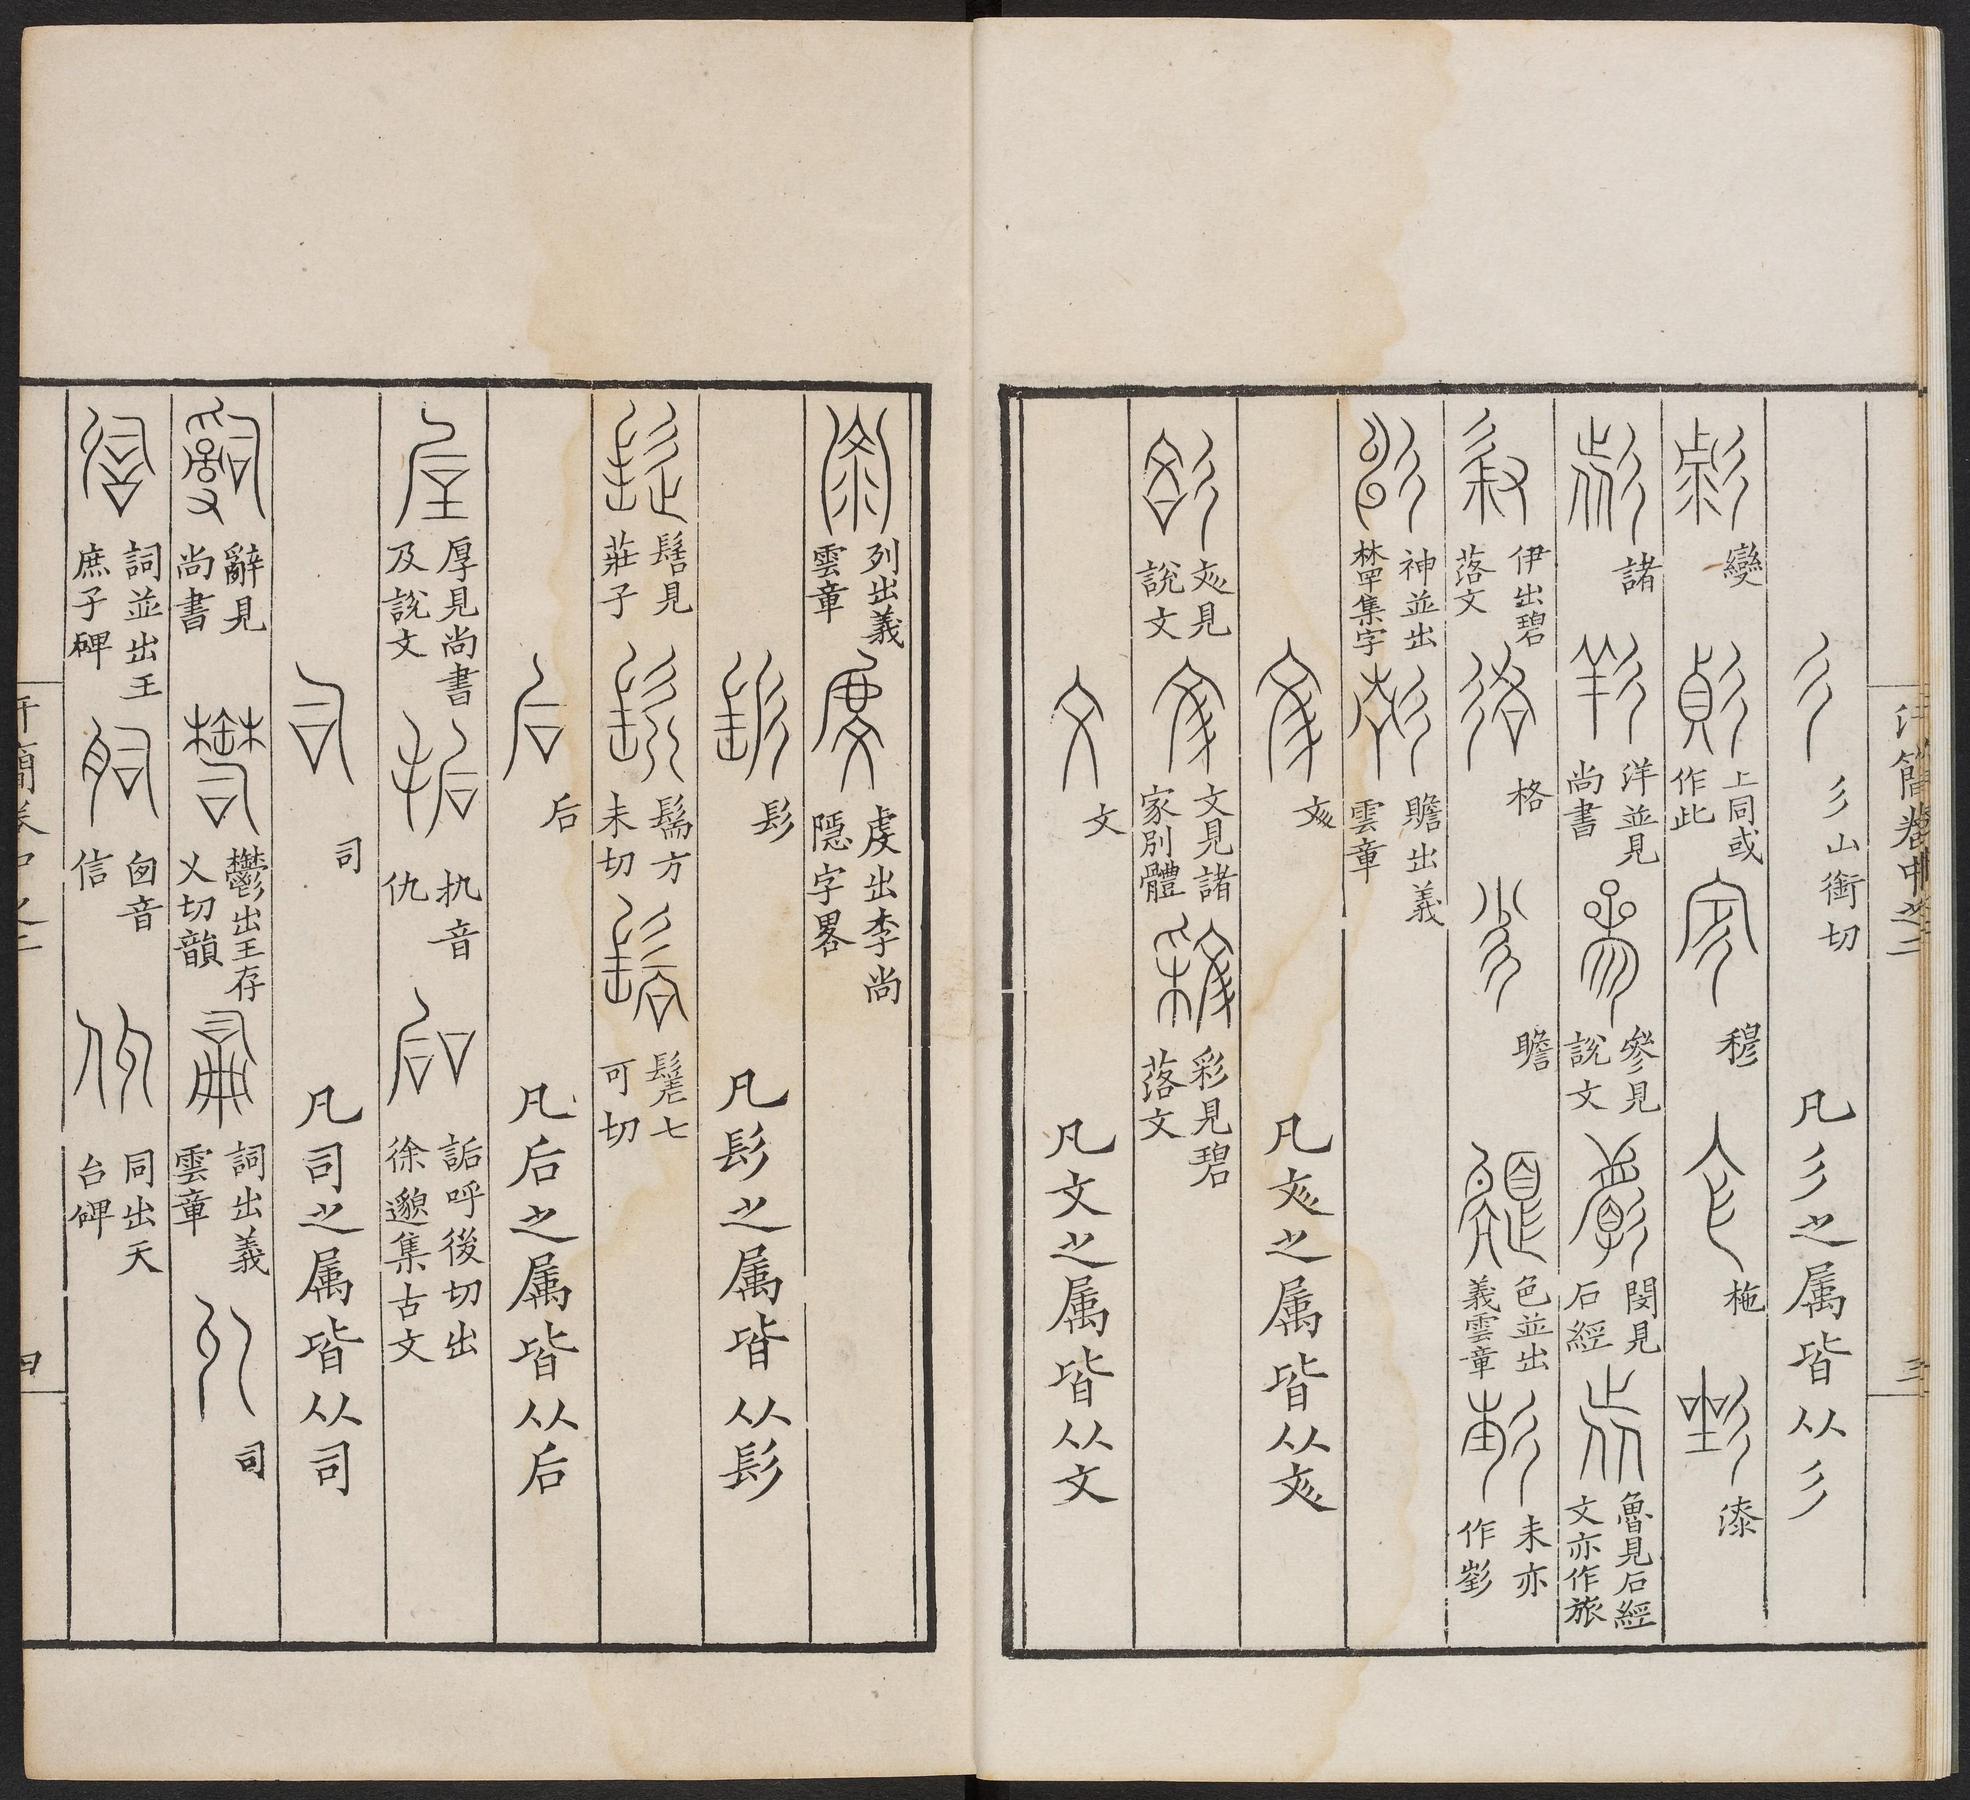 汗簡卷中之二 三
彡山銜切 凡彡之属皆从彡
變 上同或作此 穆 施 漆
諸 洋並見尚書 參見說文 閔見石經 魯見石經文亦作旅
伊出碧落文 格 瞻 色並出義雲章 未亦作
神並出林罕集字 瞻出義雲章
彣 凡彣之属皆从彣
彣見說文 文見諸家別體 彩見碧落文
文 凡文之属皆从文
列出義雲章 虔出李尚隱字畧
髟 凡髟之属皆从髟
髻見莊子 髴方未切 髊七可切
后 凡后之属皆从后
厚見尚書及說文 朹音仇 詬呼後切出徐邈集古文
司 凡司之属皆从司
辭見尚書 鬱出王存乂切韻 詞出義雲章 司
詞並出王庶子碑 囟音信 同出天台碑